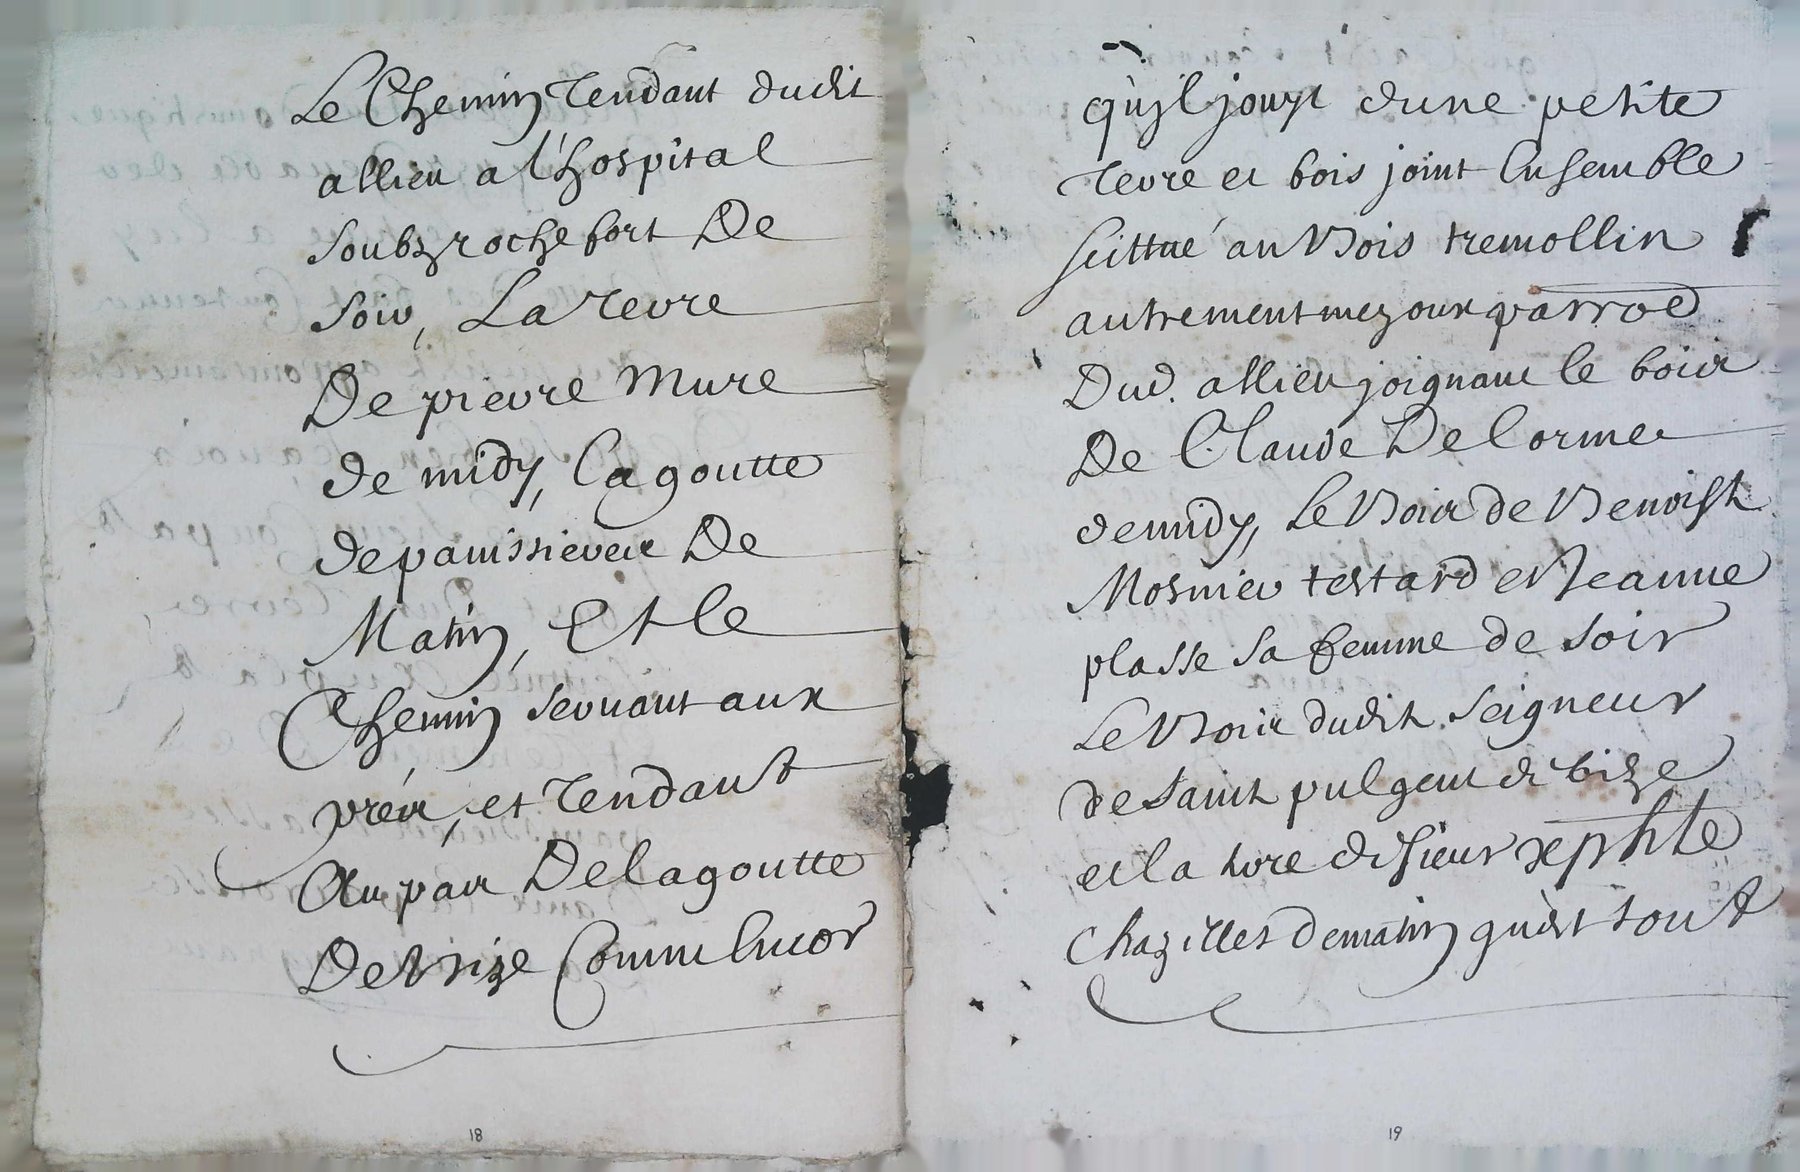 Le Chemin Tendant dudit
allieu a l'hospital
soubz rochefort De
soir, La Terre
De pierre Mure
de midy, la goutte
de panissieree De
Matin, Et le
Chemin servant aux
prés, et Tendant
Au pan De la goutte
De brize Comme Encor
18
qu'il jouyt d'une petite
Terre et bois joint Ensemble
scittué au Bois tremollin
autrement mezoux parroe
Dud. allieu joignant le bois
De Claude De Lorme
de midy, Le Bois de Benoist
Mosnier testard et Jeanne
plasse sa femme de soir
Le Bois dudit Seigneur
de Saint pulgent de bize
et la tere di sieur
Chazilles de matin qu'est tout
19